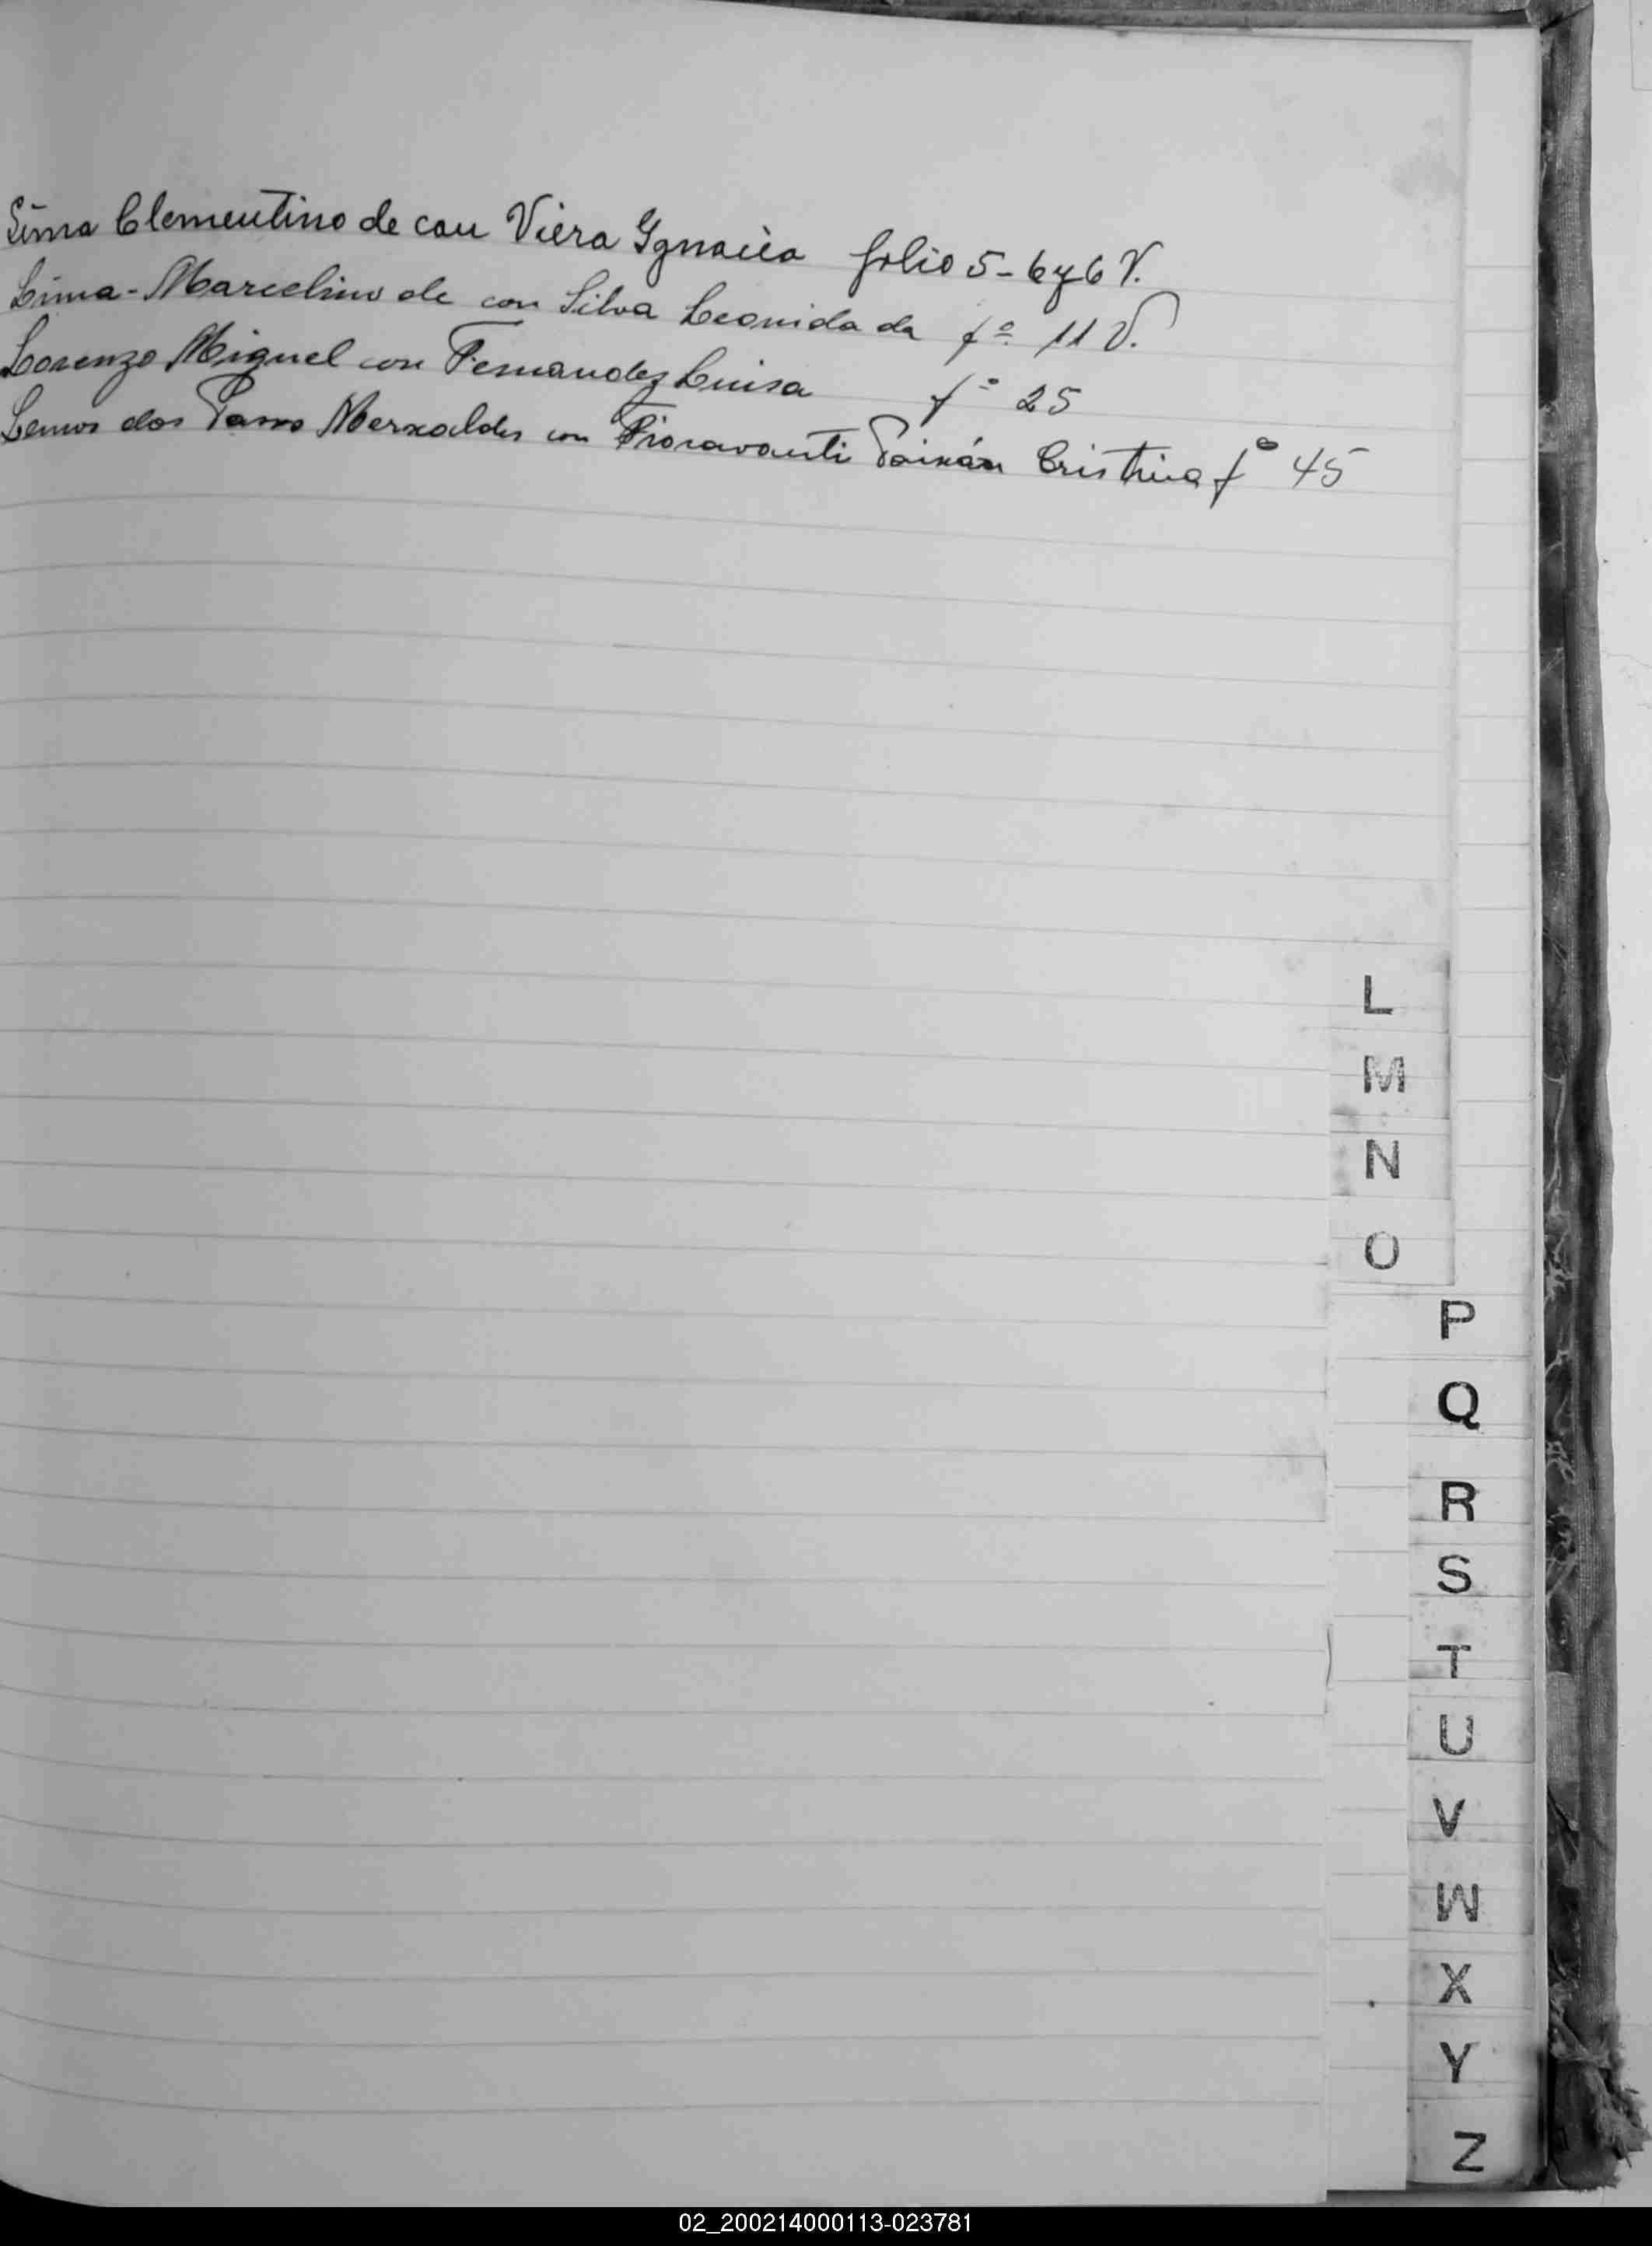 Lima Clementino de con Viera Ygnacia folio 5-6 y 6 V.
Lima-Marcelino de con Silva Leonida da fº 11 V.
Lorenzo Miguel con Fernandez Luisa fº 25
Lemos dos con Fioravanti Cristina fº 45
L
M
N
O
P
Q
R
S
T
U
V
W
X
Y
Z
02_200214000113-023781